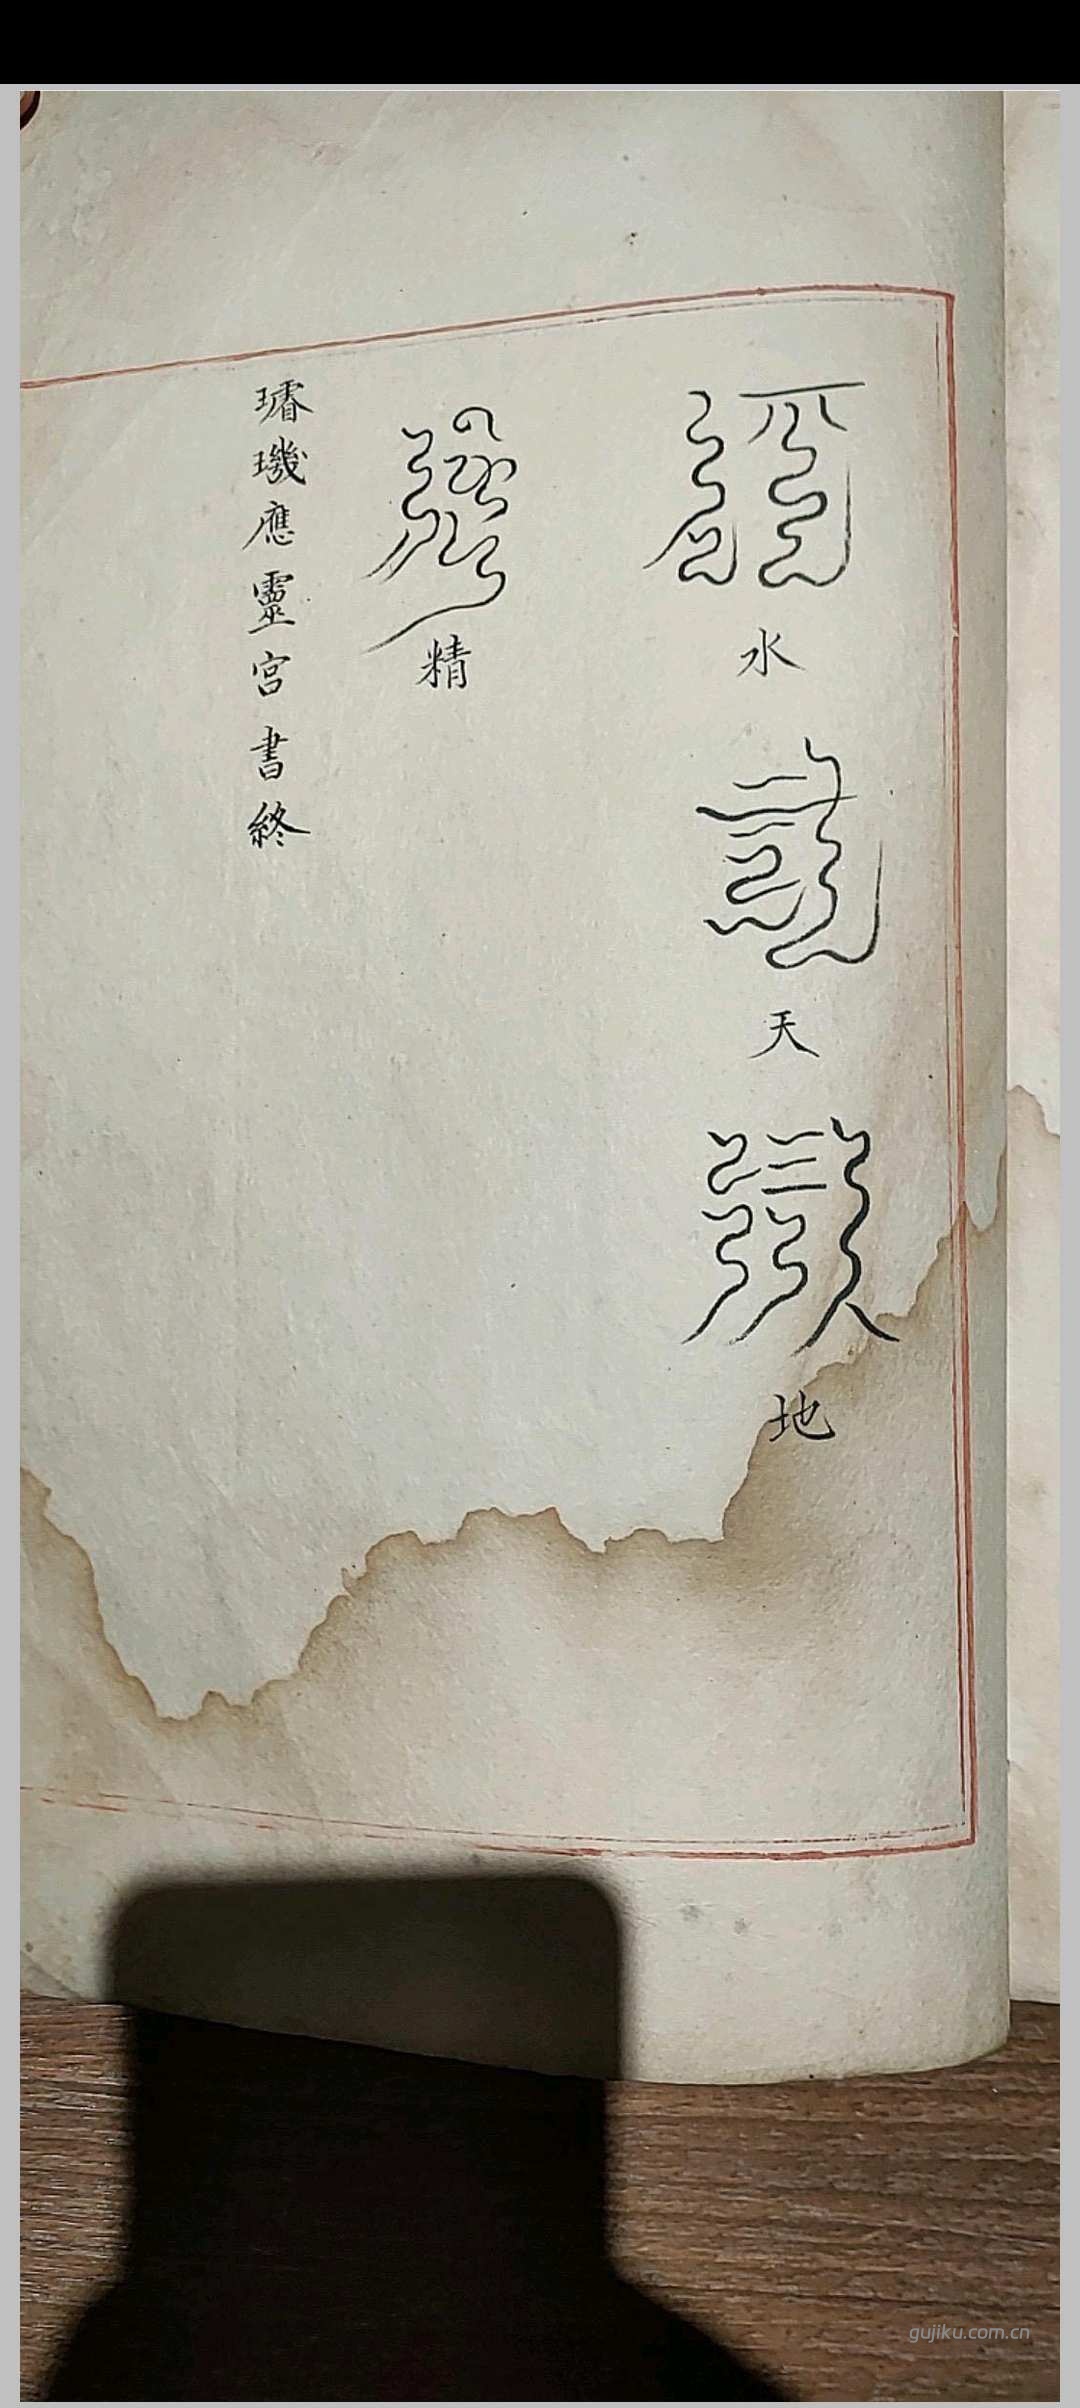 水
天
地
精
璿璣應靈宮書終
gujiku.com.cn